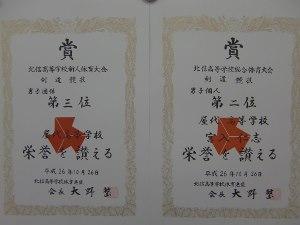 賞
北信高等学校新人体育大会
剣道競技
男子団体
第三位
屋代高等学校
栄誉を讃える
平成26年10月26日
北信高等学校体育連盟
会長 大野 繁
賞
北信高等学校総合体育大会
剣道競技
男子個人
第二位
屋代高等学校
志
栄誉を讃える
平成26年10月26日
北信高等学校体育連盟
会長 大野 繁